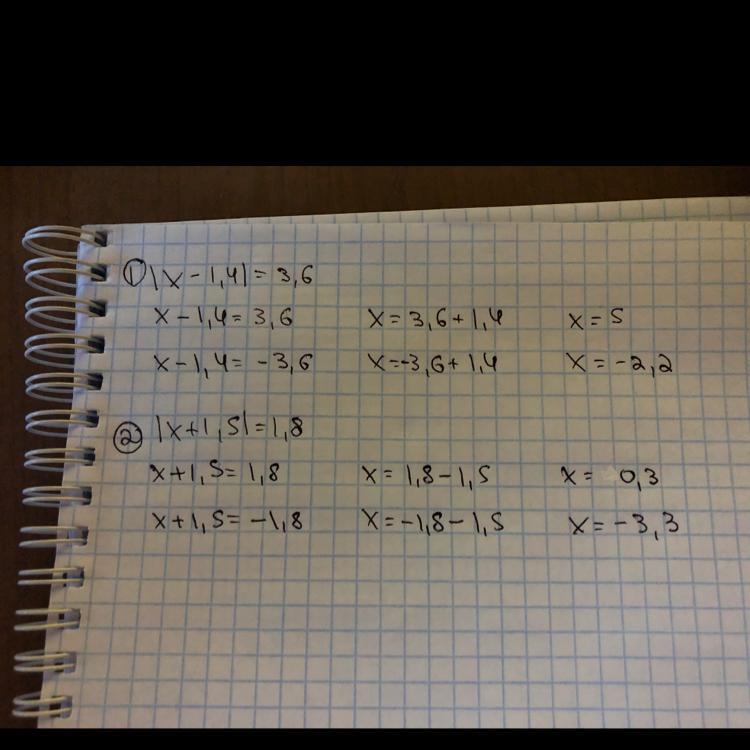 ① |x - 1,4| = 3,6
x - 1,4 = 3,6 x = 3,6 + 1,4 x = 5
x - 1,4 = -3,6 x = -3,6 + 1,4 x = -2,2
② |x + 1,5| = 1,8
x + 1,5 = 1,8 x = 1,8 - 1,5 x = 0,3
x + 1,5 = -1,8 x = -1,8 - 1,5 x = -3,3